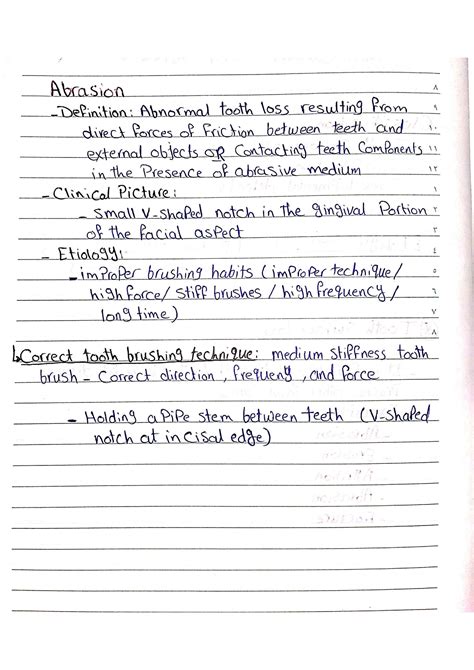 Abrasion
-Definition: Abnormal tooth loss resulting from
direct forces of friction between teeth and
external objects OR Contacting teeth Components
in the Presence of abrasive medium
- Clinical Picture:
- Small V-shaped notch in the gingival Portion
of the facial aspect
- Etiology:
- imProper brushing habits (imProper technique/
high force/ stiff brushes / high frequency/
long time)
Correct tooth brushing technique: medium stiffness tooth
brush - Correct direction, frequeny, and force
- Holding a PiPe stem between teeth (V-shaped
notch at incisal edge)
٨
٩
١٠
١١
١٢
١
٢
٣
٤
٥
٦
٧
٨